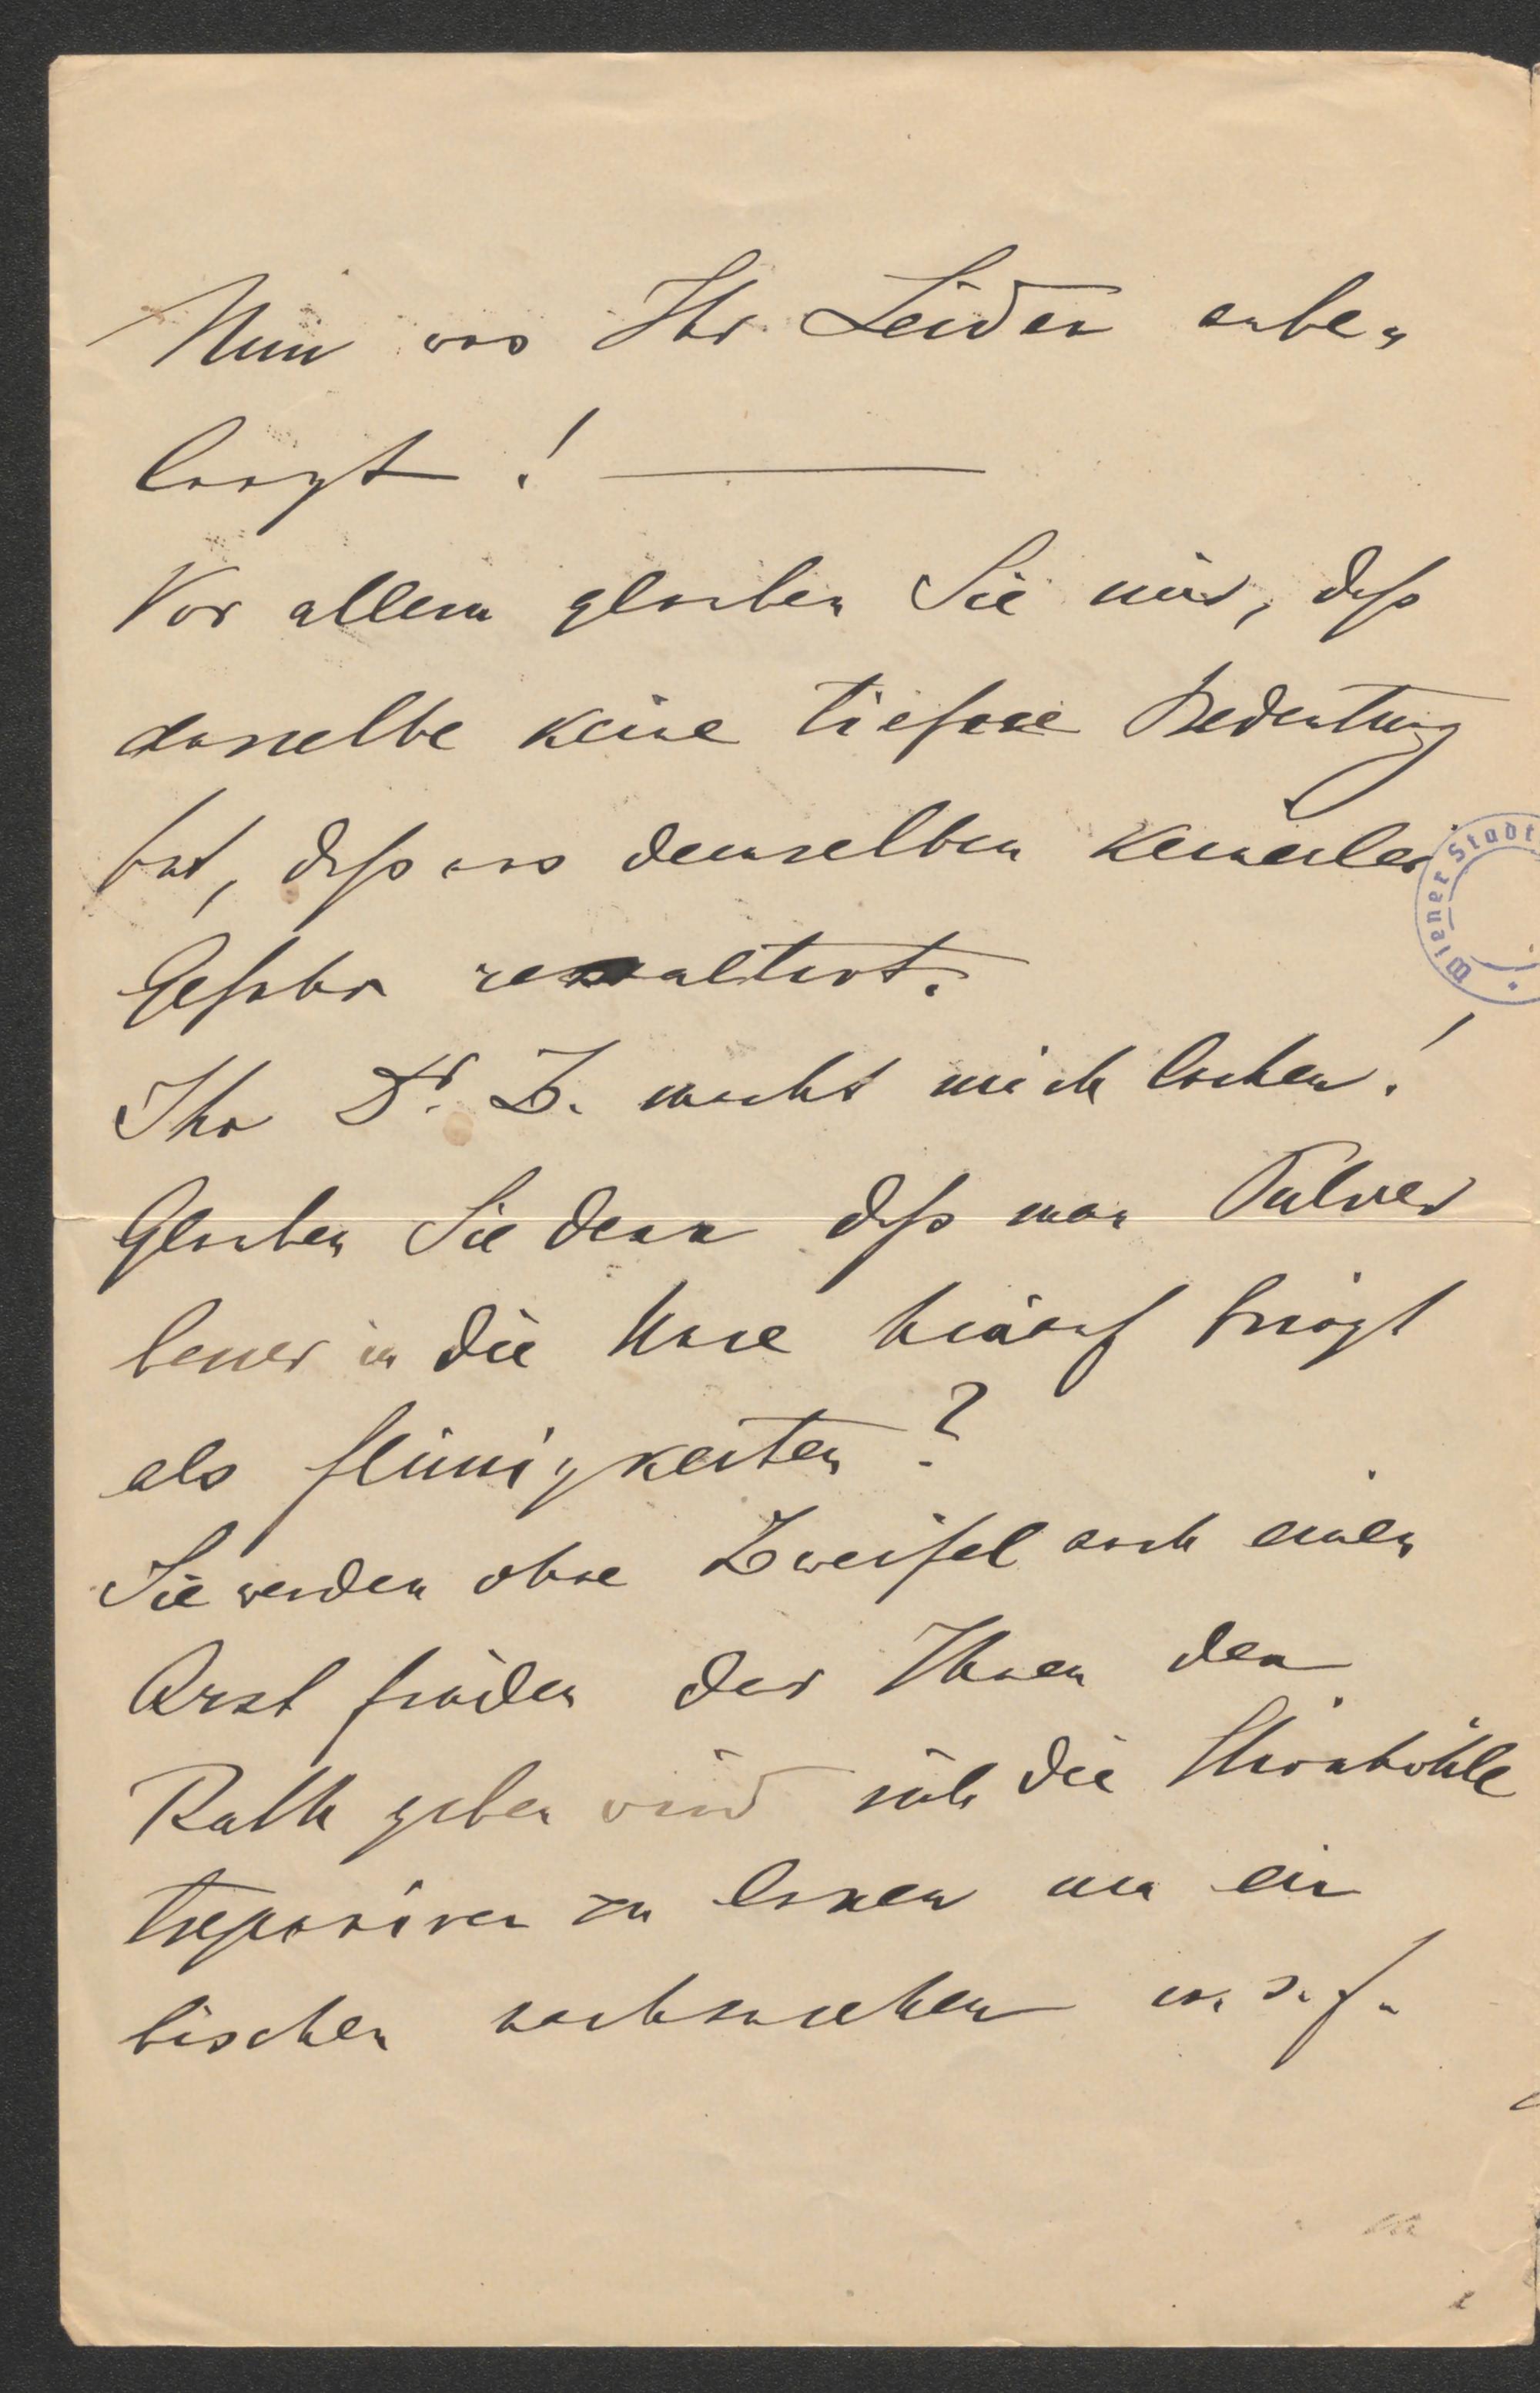 Nun was Ihr Leiden anbe-
langt! —
Vor allem glauben Sie mir, daß
dasselbe keine tiefere Bedeutung
hat, daß aus demselben keinerlei
Gefahr resultirt.
Ihr Dr. Z. macht mich lachen!
Glauben Sie denn daß man Pulver
besser in die Nase hinauf bringt
als Flüssigkeiten?
Sie werden ohne Zweifel auch einen
Arzt finden der Ihnen den
Rath geben wird sich die Stirnhöhle
trepaniren zu lassen um ein
bischen nachzusehen u. s. f.
Wiener Stadt